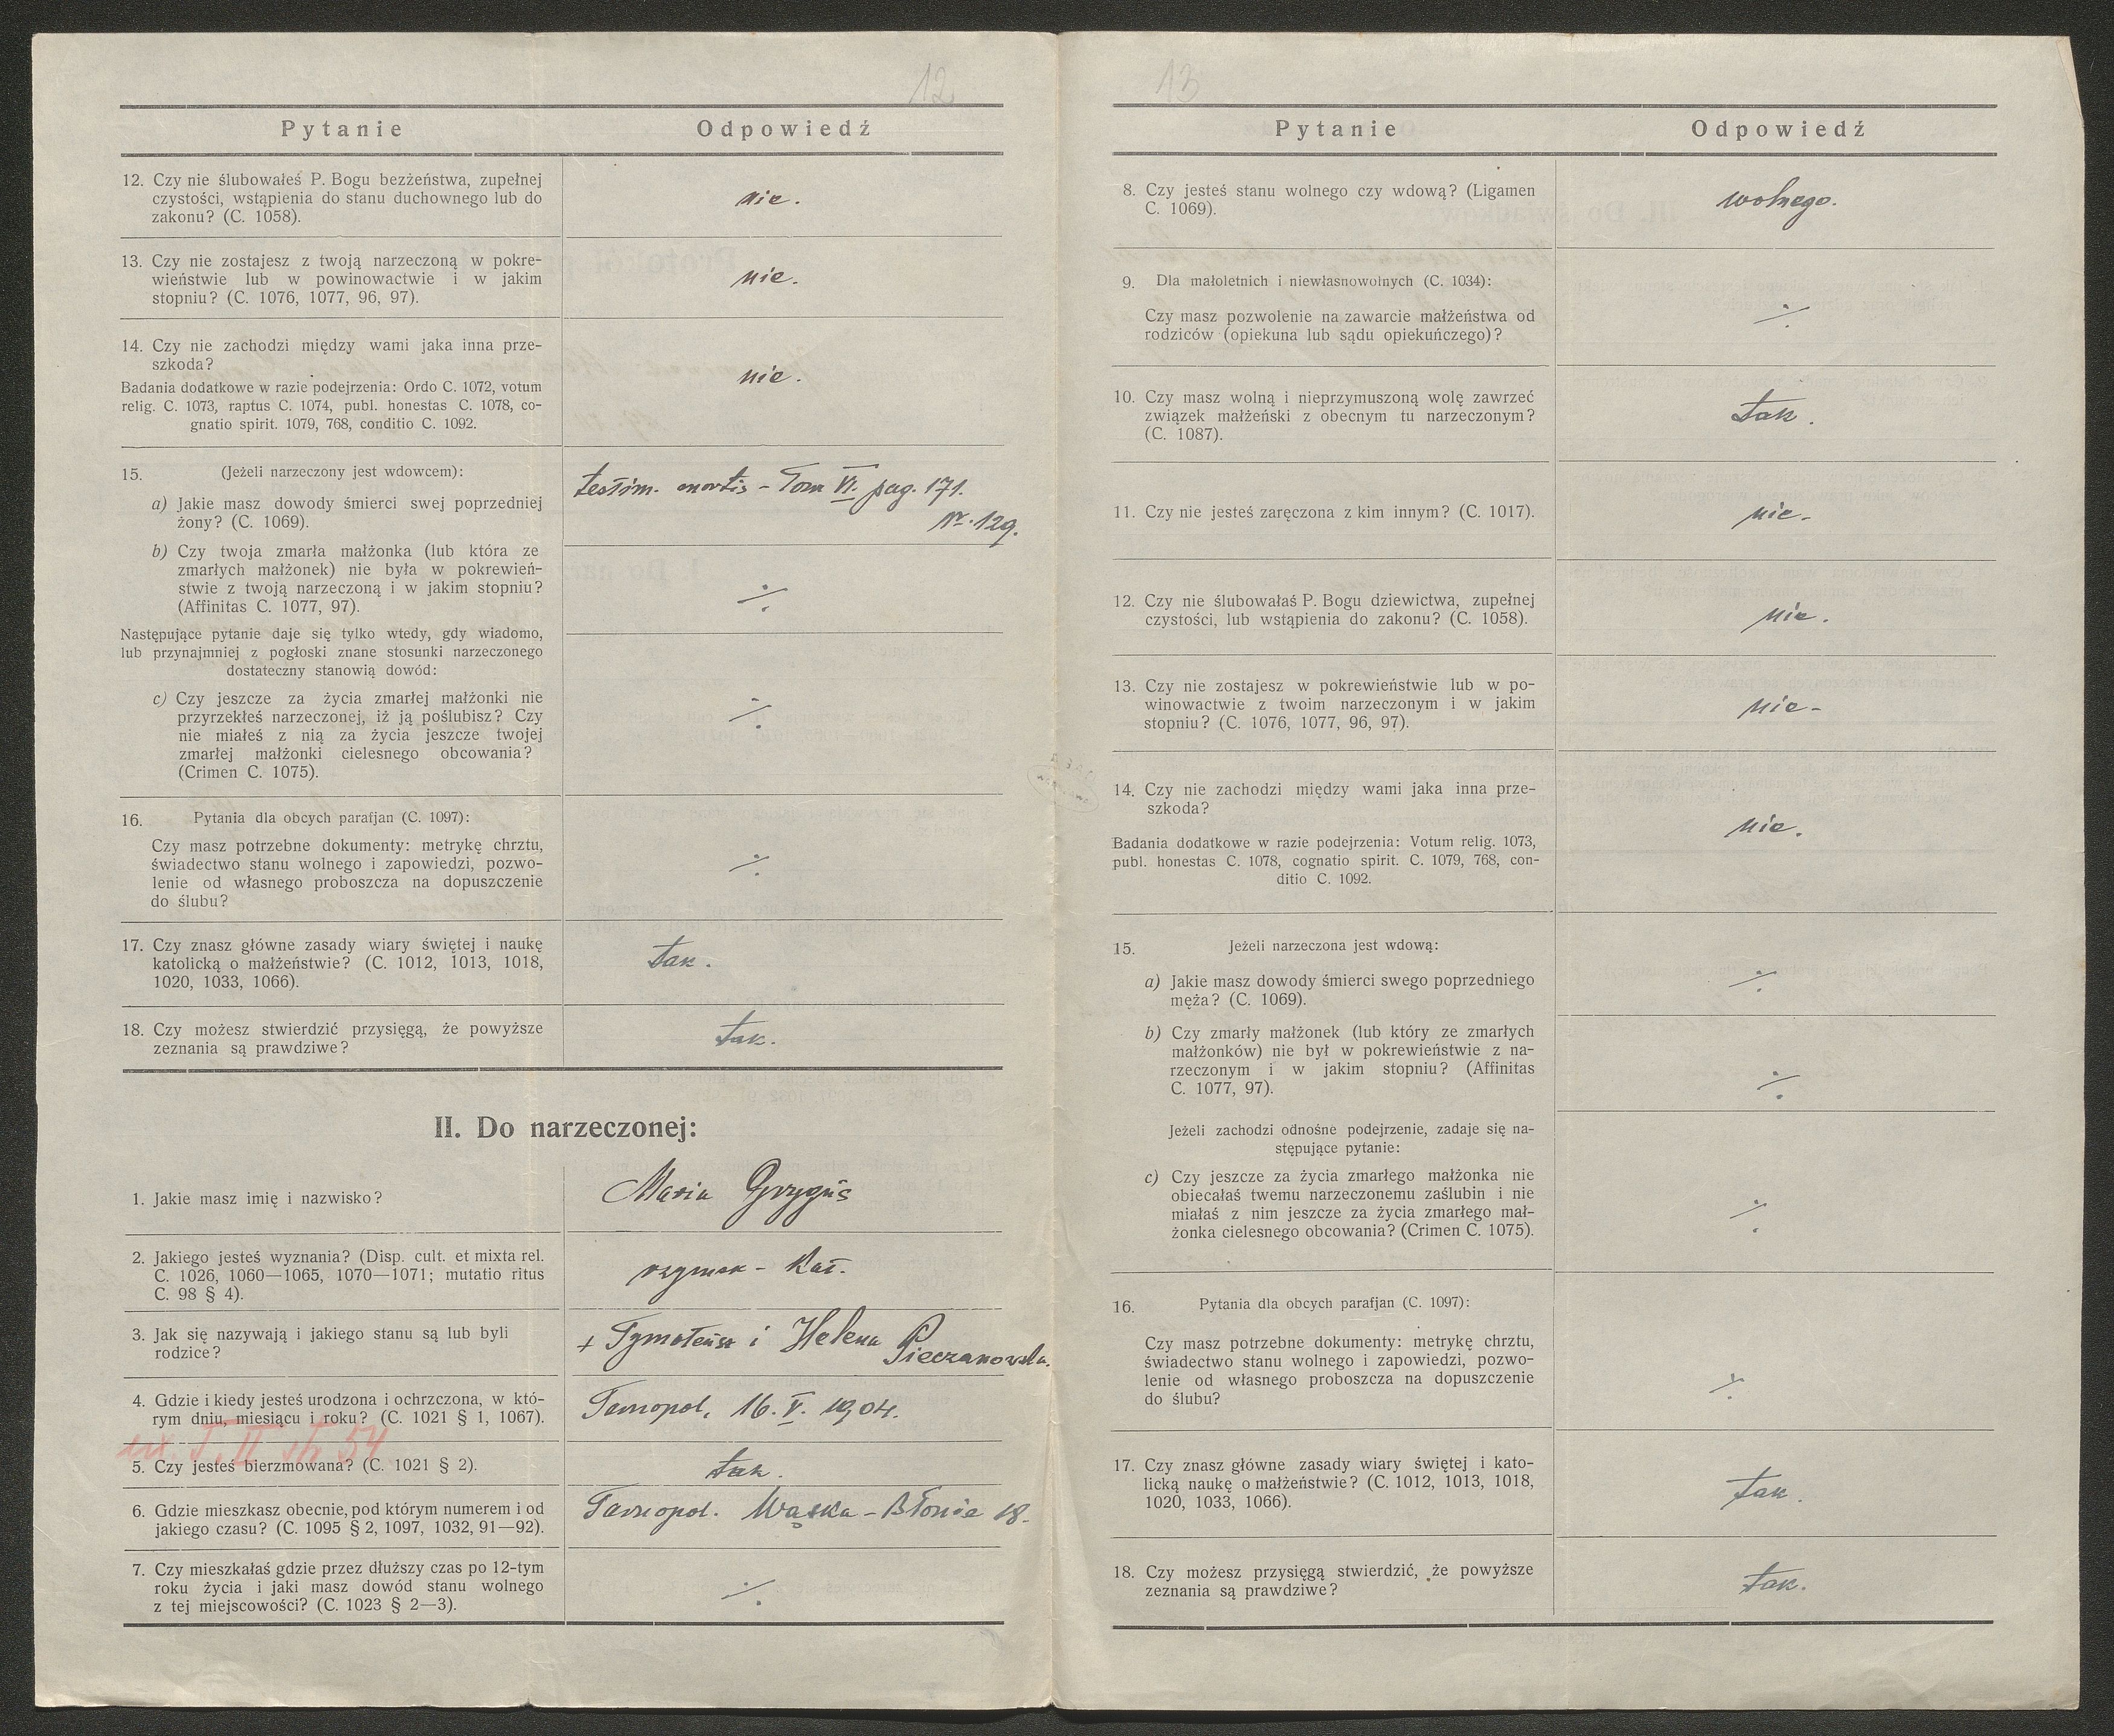 12
Pytanie
Odpowiedź
12. Czy nie ślubowałeś P. Bogu bezżeństwa, zupełnej
czystości, wstąpienia do stanu duchownego lub do
zakonu? (C. 1058).
nie.
13. Czy nie zostajesz z twoją narzeczoną w pokre-
wieństwie lub w powinowactwie i w jakim
stopniu? (C. 1076, 1077, 96, 97).
nie.
14. Czy nie zachodzi między wami jaka inna prze-
szkoda?
Badania dodatkowe w razie podejrzenia: Ordo C. 1072, votum
relig. C. 1073, raptus C. 1074, publ. honestas C. 1078, co-
gnatio spirit. 1079, 768, conditio C. 1092.
nie.
15. (Jeżeli narzeczony jest wdowcem):
a) Jakie masz dowody śmierci swej poprzedniej
żony? (C. 1069).
testim. mortis - Tom VI. pag. 171.
Nr. 129.
b) Czy twoja zmarła małżonka (lub która ze
zmarłych małżonek) nie była w pokrewień-
stwie z twoją narzeczoną i w jakim stopniu?
(Affinitas C. 1077, 97).
÷
Następujące pytanie daje się tylko wtedy, gdy wiadomo,
lub przynajmniej z pogłoski znane stosunki narzeczonego
dostateczny stanowią dowód:
c) Czy jeszcze za życia zmarłej małżonki nie
przyrzekłeś narzeczonej, iż ją poślubisz? Czy
nie miałeś z nią za życia jeszcze twojej
zmarłej małżonki cielesnego obcowania?
(Crimen C. 1075).
÷
16. Pytania dla obcych parafjan (C. 1097):
Czy masz potrzebne dokumenty: metrykę chrztu,
świadectwo stanu wolnego i zapowiedzi, pozwo-
lenie od własnego proboszcza na dopuszczenie
do ślubu?
÷
17. Czy znasz główne zasady wiary świętej i naukę
katolicką o małżeństwie? (C. 1012, 1013, 1018,
1020, 1033, 1066).
tak.
18. Czy możesz stwierdzić przysięgą, że powyższe
zeznania są prawdziwe?
tak.
II. Do narzeczonej:
1. Jakie masz imię i nazwisko?
Maria Gryguś
2. Jakiego jesteś wyznania? (Disp. cult. et mixta rel.
C. 1026, 1060—1065, 1070—1071; mutatio ritus
C. 98 § 4).
rzymsk - kat.
3. Jak się nazywają i jakiego stanu są lub byli
rodzice?
+ Tymoteusz i Helena Pieczanowska.
4. Gdzie i kiedy jesteś urodzona i ochrzczona, w któ-
rym dniu, miesiącu i roku? (C. 1021 § 1, 1067).
Tarnopol, 16. V. 1904.
T. II str 54
5. Czy jesteś bierzmowana? (C. 1021 § 2).
tak.
6. Gdzie mieszkasz obecnie, pod którym numerem i od
jakiego czasu? (C. 1095 § 2, 1097, 1032, 91—92).
Tarnopol. Wąska - Błonie 18.
7. Czy mieszkałaś gdzie przez dłuższy czas po 12-tym
roku życia i jaki masz dowód stanu wolnego
z tej miejscowości? (C. 1023 § 2—3).
÷
13
Pytanie
Odpowiedź
8. Czy jesteś stanu wolnego czy wdową? (Ligamen
C. 1069).
wolnego.
9. Dla małoletnich i niewłasnowolnych (C. 1034):
Czy masz pozwolenie na zawarcie małżeństwa od
rodziców (opiekuna lub sądu opiekuńczego)?
÷
10. Czy masz wolną i nieprzymuszoną wolę zawrzeć
związek małżeński z obecnym tu narzeczonym?
(C. 1087).
tak.
11. Czy nie jesteś zaręczona z kim innym? (C. 1017).
nie.
12. Czy nie ślubowałaś P. Bogu dziewictwa, zupełnej
czystości, lub wstąpienia do zakonu? (C. 1058).
nie.
13. Czy nie zostajesz w pokrewieństwie lub w po-
winowactwie z twoim narzeczonym i w jakim
stopniu? (C. 1076, 1077, 96, 97).
nie-
14. Czy nie zachodzi między wami jaka inna prze-
szkoda?
Badania dodatkowe w razie podejrzenia: Votum relig. 1073,
publ. honestas C. 1078, cognatio spirit. C. 1079, 768, con-
ditio C. 1092.
nie.
15. Jeżeli narzeczona jest wdową:
a) Jakie masz dowody śmierci swego poprzedniego
męża? (C. 1069).
÷
b) Czy zmarły małżonek (lub który ze zmarłych
małżonków) nie był w pokrewieństwie z na-
rzeczonym i w jakim stopniu? (Affinitas
C. 1077, 97).
÷
Jeżeli zachodzi odnośne podejrzenie, zadaje się na-
stępujące pytanie:
c) Czy jeszcze za życia zmarłego małżonka nie
obiecałaś twemu narzeczonemu zaślubin i nie
miałaś z nim jeszcze za życia zmarłego mał-
żonka cielesnego obcowania? (Crimen C. 1075).
÷
16. Pytania dla obcych parafjan (C. 1097):
Czy masz potrzebne dokumenty: metrykę chrztu,
świadectwo stanu wolnego i zapowiedzi, pozwo-
lenie od własnego proboszcza na dopuszczenie
do ślubu?
÷
17. Czy znasz główne zasady wiary świętej i kato-
licką naukę o małżeństwie? (C. 1012, 1013, 1018,
1020, 1033, 1066).
tak.
18. Czy możesz przysięgą stwierdzić, że powyższe
zeznania są prawdziwe?
tak.